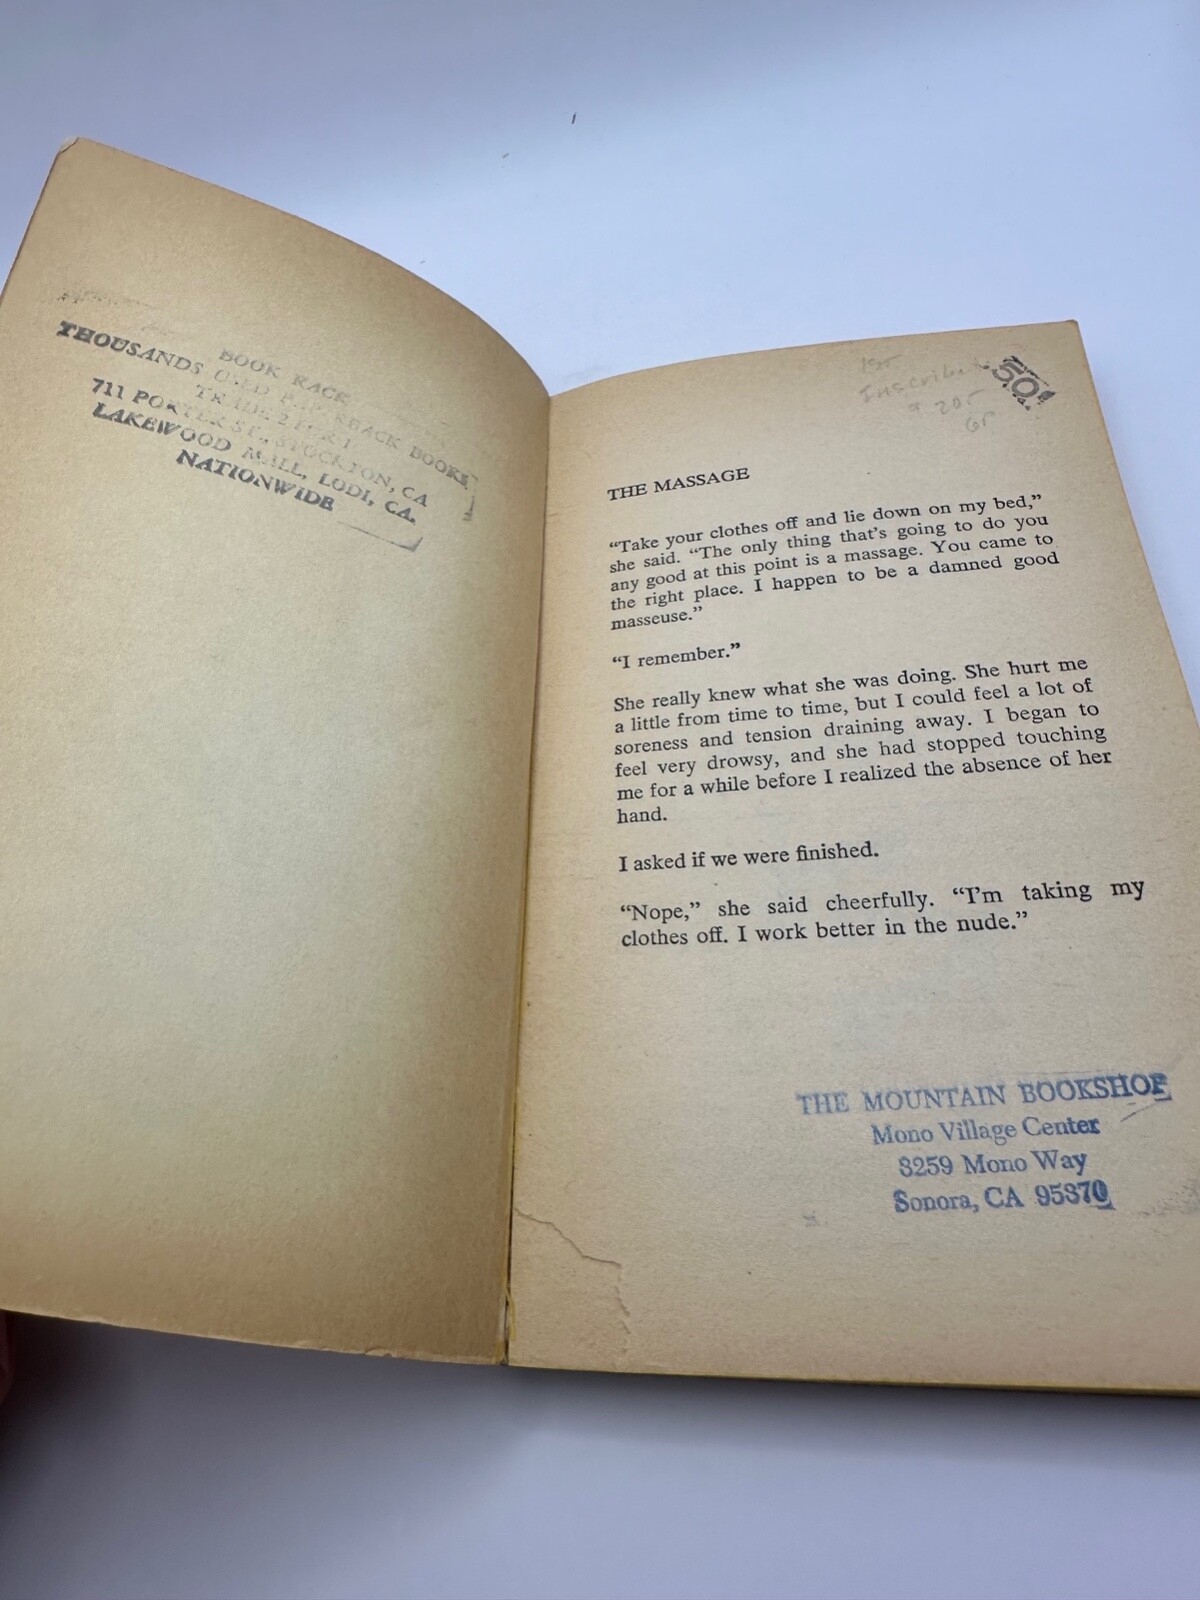 BOOK RACK
THOUSANDS USED PAPERBACK BOOKS
TRADE 2 FOR 1
711 PORTER ST., STOCKTON, CA
LAKEWOOD MALL, LODI, CA.
NATIONWIDE
1st
Inscribed
50¢
THE MASSAGE
“Take your clothes off and lie down on my bed,”
she said. “The only thing that’s going to do you
any good at this point is a massage. You came to
the right place. I happen to be a damned good
masseuse.”
“I remember.”
She really knew what she was doing. She hurt me
a little from time to time, but I could feel a lot of
soreness and tension draining away. I began to
feel very drowsy, and she had stopped touching
me for a while before I realized the absence of her
hand.
I asked if we were finished.
“Nope,” she said cheerfully. “I’m taking my
clothes off. I work better in the nude.”
THE MOUNTAIN BOOKSHOP
Mono Village Center
3259 Mono Way
Sonora, CA 95370